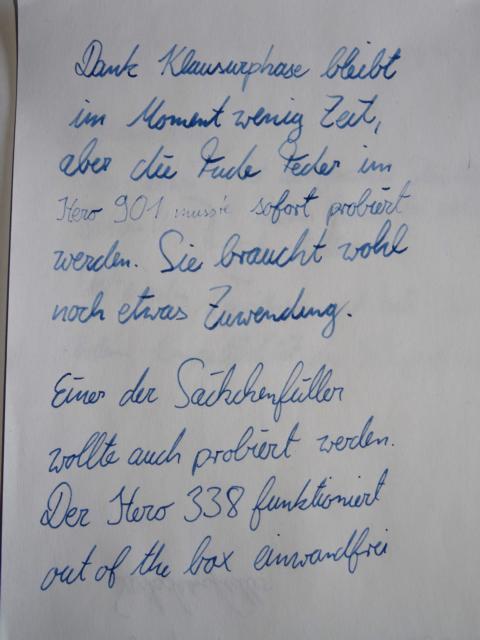 Dank Klausurphase bleibt
im Moment wenig Zeit,
aber die Fude Feder im
Hero 901 musste sofort probiert
werden. Sie braucht wohl
noch etwas Zuwendung.
Einer der Säckchenfüller
wollte auch probiert werden.
Der Hero 338 funktioniert
out of the box einwandfrei